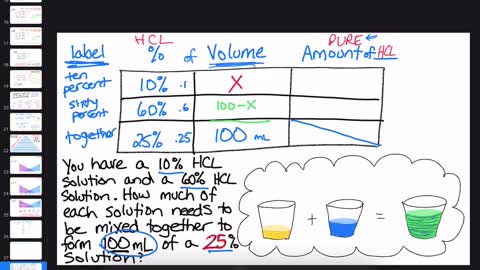 HCL PURE
label % of Volume Amount of HCL
ten percent 10% .1 X
sixty percent 60% .6 100-X
together 25% .25 100 mL
You have a 10% HCL
solution and a 60% HCL
solution. How much of
each solution needs to
be mixed together to
form 100mL of a 25%
solution?
+ =